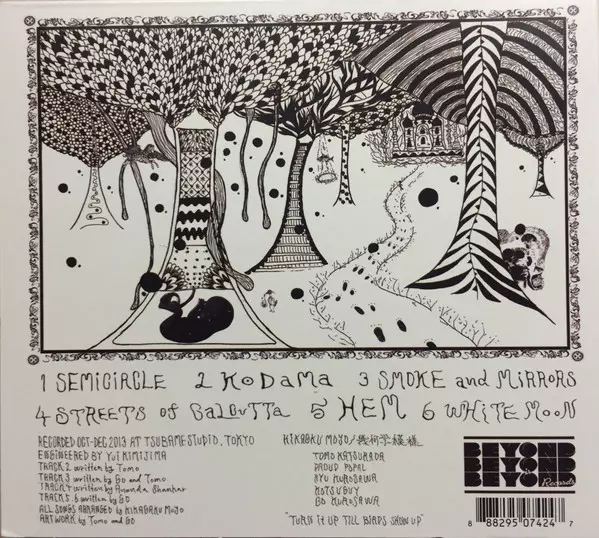 1 SEMICIRCLE 2 KODAMA 3 SMOKE and MIRRORS
4 STREETS of CALCUTTA 5 HEM 6 WHITE MOON
RECORDED OCT-DEC 2013 AT TSUBAME STUDIO, TOKYO
ENGINEERED BY YUI KIMIJIMA
TRACK 2 written by Tomo
TRACK 3 written by Go and Tomo
TRACK 4 written by Ananda Shankar
TRACK 5.6 written by GO
ALL SONGS ARRANGED by KIKAGAKU MOYO
ARTWORK by Tomo and GO
KIKAGAKU MOYO/幾何学模様
TOMO KATSURADA
DAOUD POPAL
RYU KUROSAWA
KOTSUGUY
GO KUROSAWA
"TURN IT UP TILL BIRDS SHOW UP"
BEYOND
BEYOND
BEYOND
Records
8 88295 07424 7